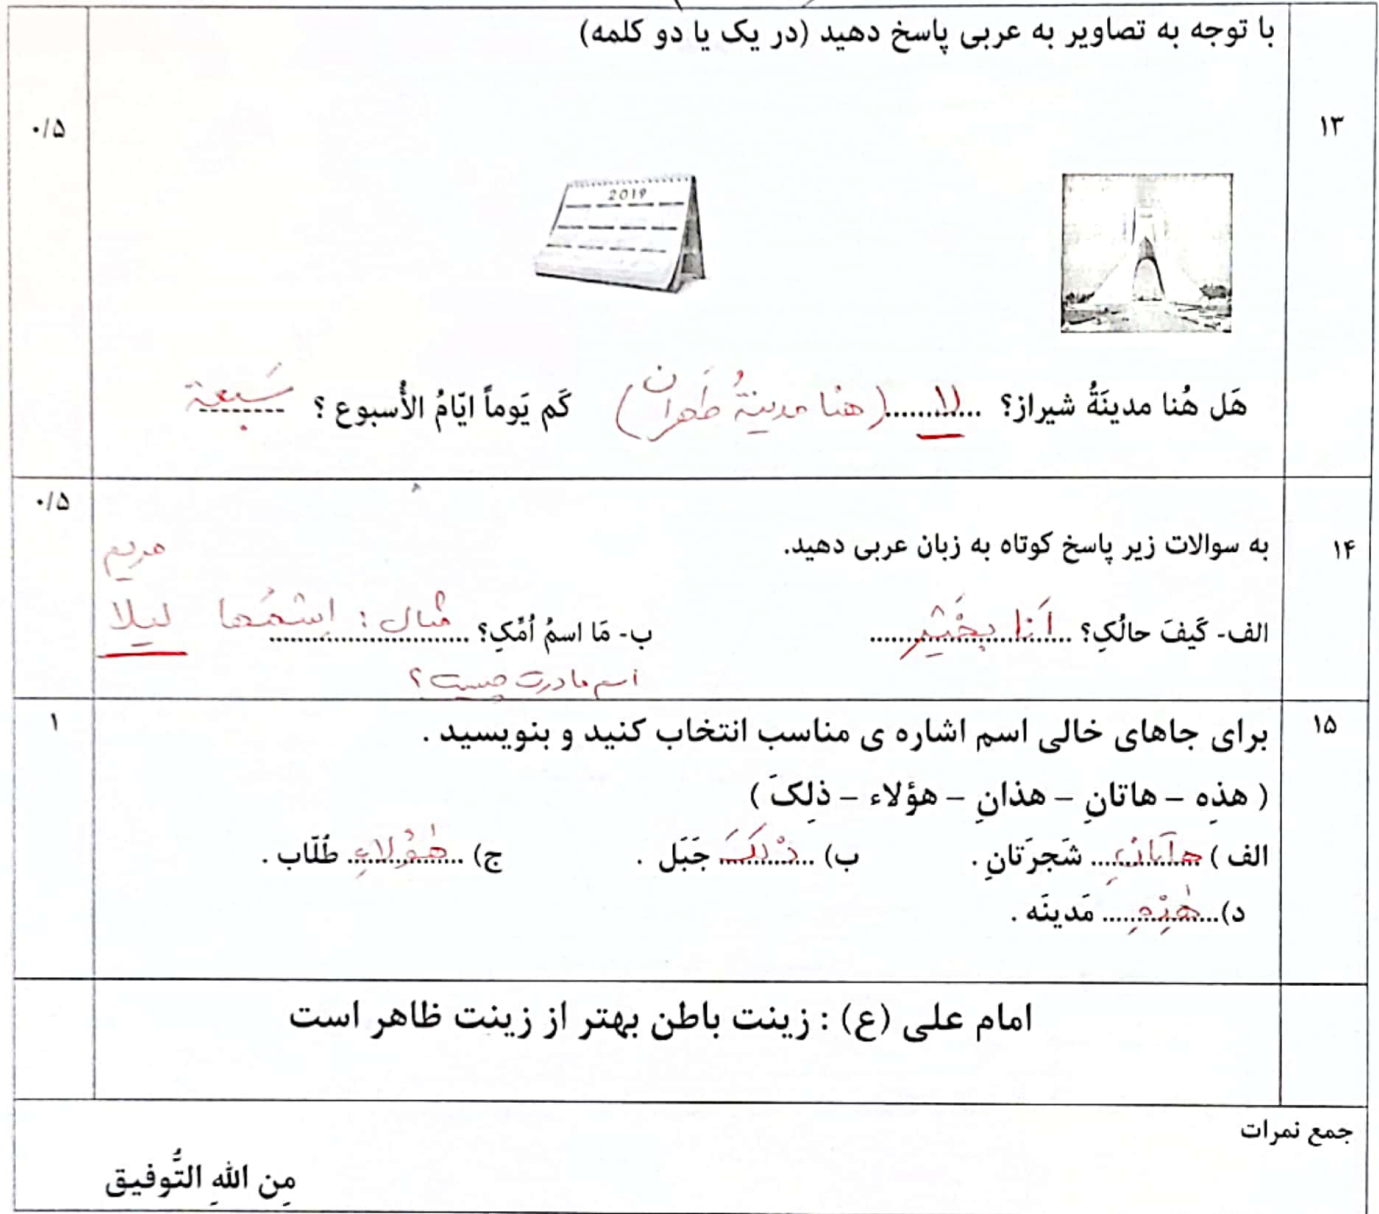 با توجه به تصاویر به عربی پاسخ دهید (در یک یا دو کلمه)
۱۳
۰/۵
2019
هَل هُنا مدینَةُ شیراز؟ ...لا... (هنا مدینةُ طَهران) کَم یَوماً ایّامُ الأُسبوع ؟ سَبعة
۰/۵
۱۴
به سوالات زیر پاسخ کوتاه به زبان عربی دهید.
مریم
الف- کَیفَ حالُکِ؟ أنا بِخَیْر ب- مَا اسمُ اُمِّکِ؟ مثال : اِسْمُها لیلا
اسم مادرت چیست؟
۱
۱۵
برای جاهای خالی اسم اشاره ی مناسب انتخاب کنید و بنویسید .
( هذِه – هاتانِ – هذانِ – هؤلاء – ذلِکَ )
الف ) هاتانِ شَجرَتانِ . ب) ذٰلِکَ جَبَل . ج) هٰؤُلاءِ طُلّاب .
د) هٰذِهِ مَدینَه .
امام علی (ع) : زینت باطن بهتر از زینت ظاهر است
جمع نمرات
مِن اللهِ التَّوفیق